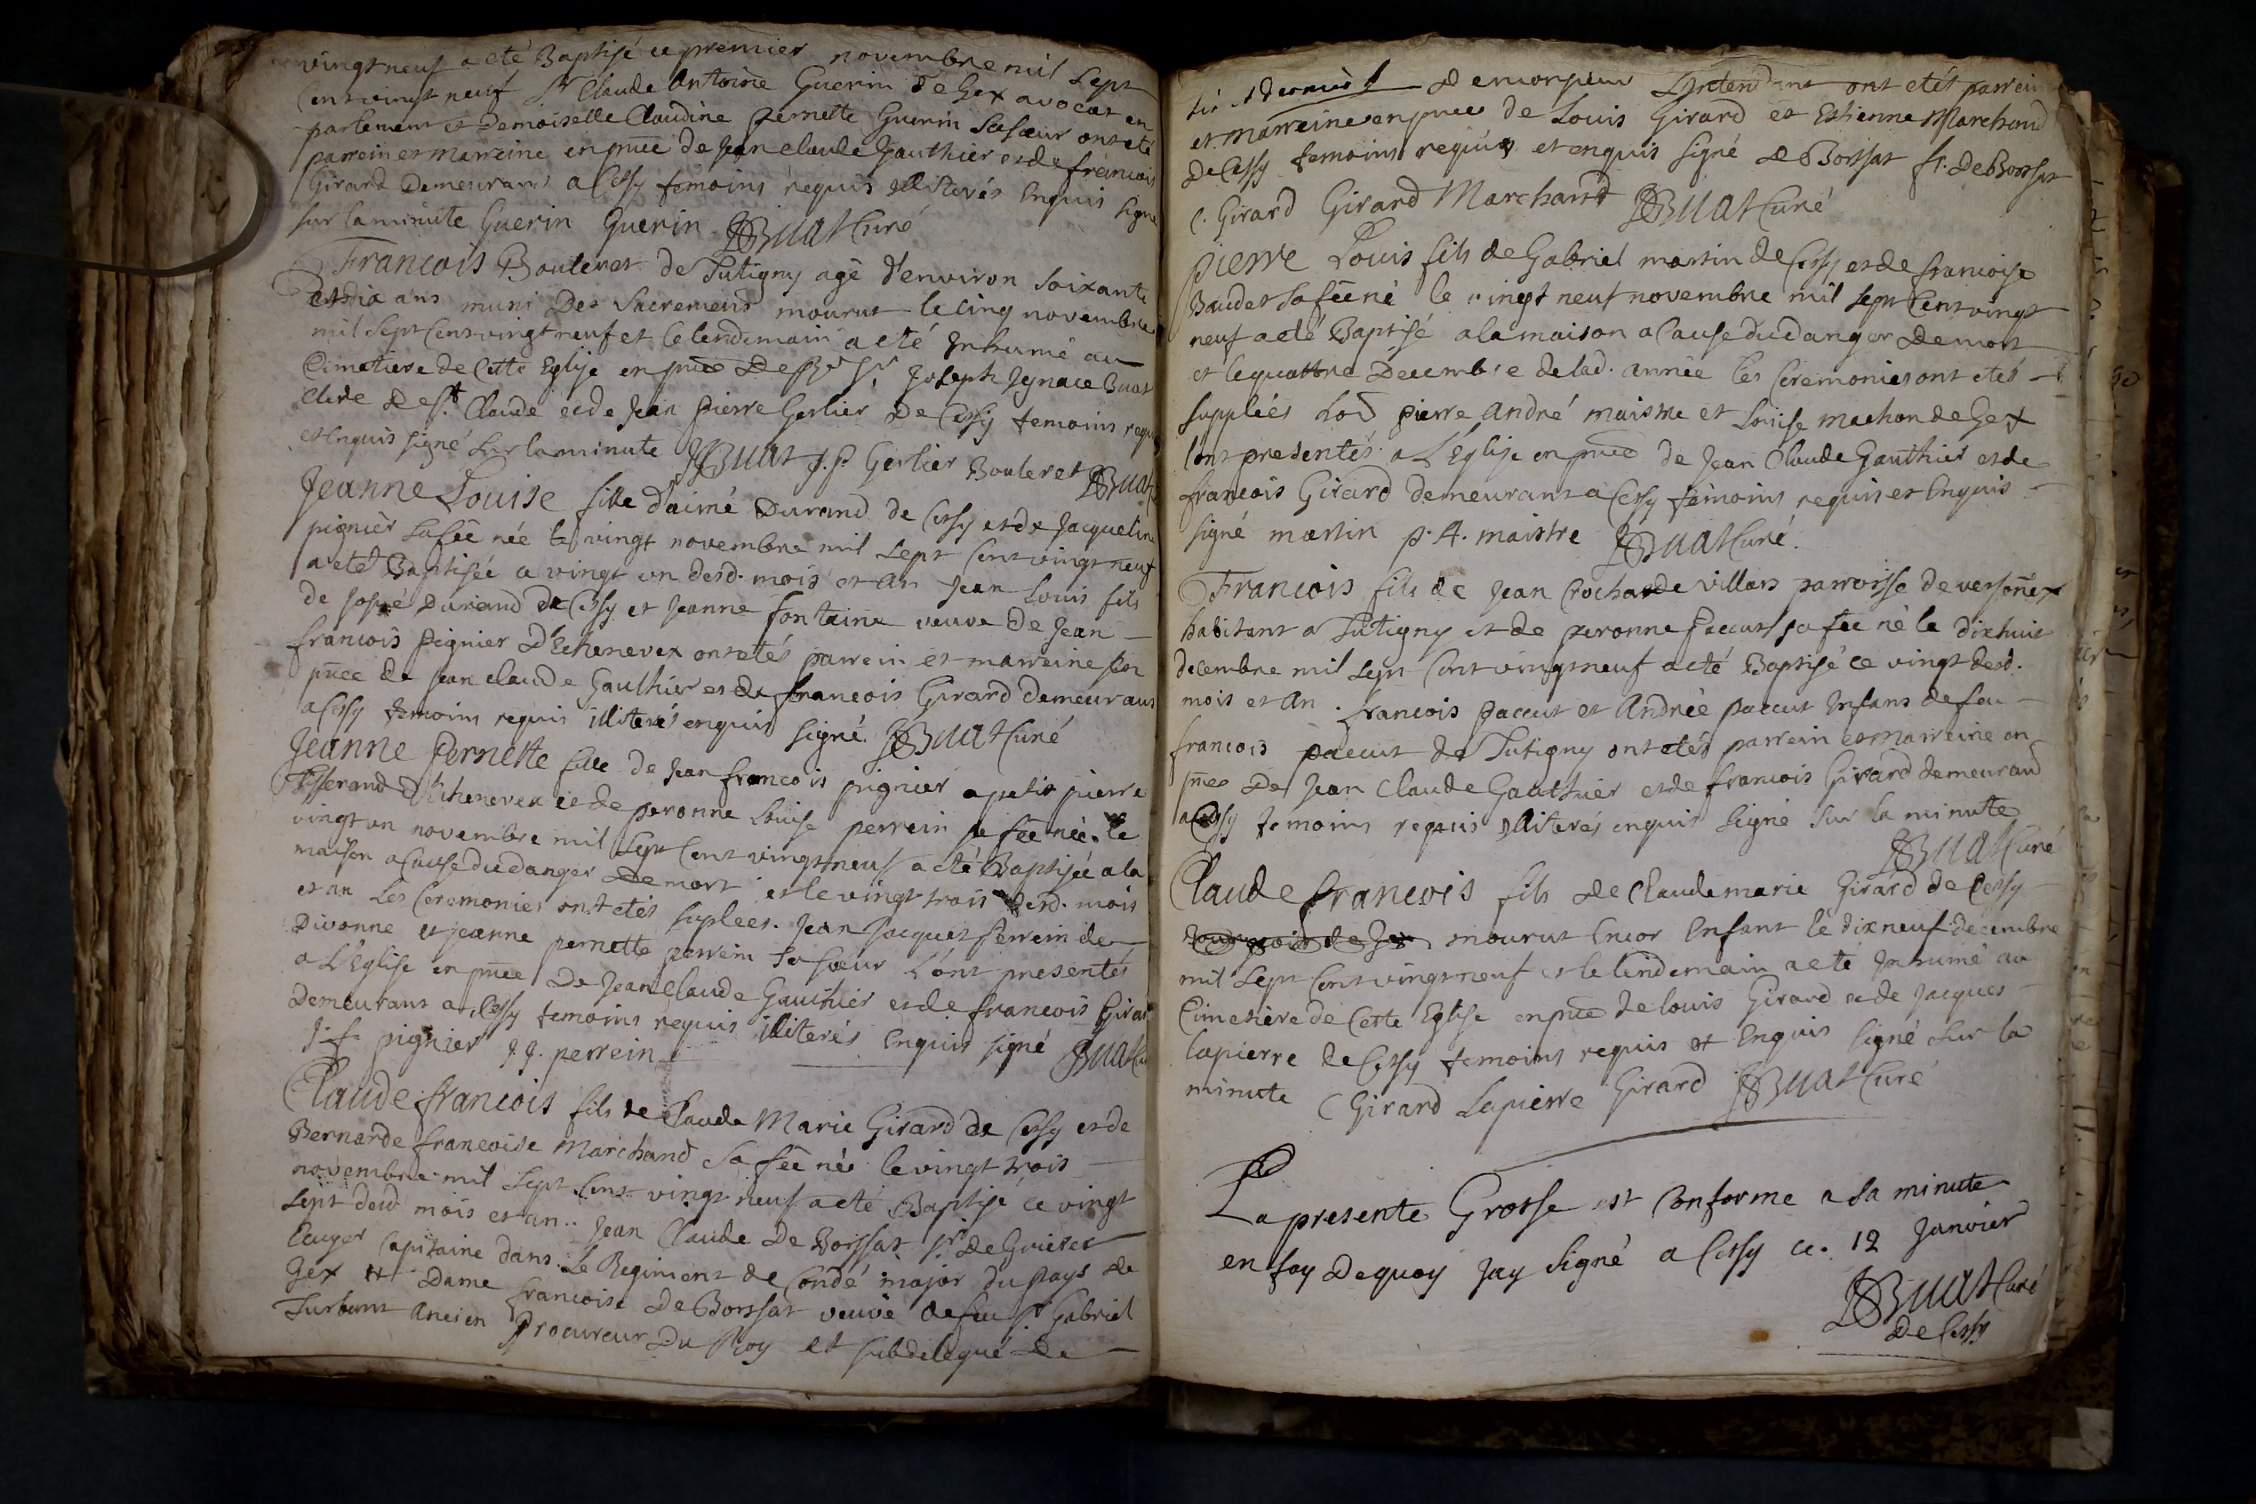 vingt neuf a eté Baptisé ce premier novembre mil sept
Cent vingt neuf Sr Claude Antoine Guerin de Gex avocat en
parlement et Demoiselle Claudine pernette Guerin sa sœur ont eté
parrein et marreine en pnce de Jean claude Gauthier et de francois
Girard Demeurans a Cessy temoins requis illiterés Enquis signé
sur la minute Guerin Guerin JBuat Curé
Francois Bouleret de Tutigny agé d'environ soixante
et dix ans muni Des Sacremens mourut le cinq novembre
mil sept Cent vingt neuf et le lendemain a eté Inhumé au
Cimetiere de Cette Eglise en pnce De Sr Joseph Ignace Buat
Clerc De St Claude et de Jean pierre Gerlier De Cessy temoins requis
et Enquis signé sur la minute JBuat J.P. Gerlier Bouleret JBuat
Jeanne Louise fille d'aimé Durand de Cessy et de Jacqueline
pignier sa fée née le vingt novembre mil sept Cent vingt neuf
a eté Baptisée ce vingt un desd. mois et an Jean Louis fils
de Durand de Cessy et Jeanne fontaine veuve de Jean
francois pignier D'Echenevex ont etés parrein et marreine En
pnce de Jean claude Gauthier et de francois Girard demeurans
a Cessy temoins requis illiterés enquis signé JBuat Curé
Jeanne Pernette fille de Jean francois pignier a petit pierre
Tisserand D'Echenevex et de peronne Louise perrein sa fée née le
vingt un novembre mil sept Cent vingt neuf a eté Baptisée a la
maison a Cause du danger De mort et le vingt trois desd. mois
et an Les Ceremonies ont etés suplées. Jean Jacques Perrein de
Divonne et jeanne pernette perrein sa sœur L'ont presentés
a L'Eglise en pnce De Jean Claude Gauthier et de francois Girard
demeurans a Cessy temoins requis illiterés Enquis signé JBuat Cu
J. f. pignier J.J. perrein
Claude francois fils de Claude Marie Girard de Cessy et de
Bernarde francoise Marchand sa fée né le vingt trois
novembre mil sept Cent vingt neuf a eté Baptisé ce vingt
sept desd mois et an.. Jean Claude De Borssat Sr De
Ecuyer Capitaine dans Le Regiment de Condé major du Pays de
Gex et Dame francoise De Borssat veuve de feu Sr Gabriel
ancien Procureur Du Roy et subdelegué de
De monsieur L'Intendant ont etés parrein
et marreine en pnce de Louis Girard et Estienne Marchand
De Cessy temoins requis et enquis signé De Borssat fr. De Borssat
C. Girard Girard Marchand JBuat Curé
Pierre Louis fils de Gabriel martin de Cessy et de francoise
Baudet sa fée né le vingt neuf novembre mil sept Cent vingt
neuf a eté Baptisé a la maison a Cause du danger De mort
et le quattre Decembre de lad. année les Ceremonies ont etés
suppleés pierre André maistre et Louise mechon de Gex
l'ont presentés a L'Eglise en pnce de Jean Claude Gauthier et de
francois Girard demeurans a Cessy temoins requis et Enquis
signé martin p. A. maistre JBuat Curé.
Francois fils de Jean Crochat de villars parroisse de versonex
habitant a Tutigny et de peronne paccut sa fée né le dixhuit
decembre mil sept Cent vingt neuf a eté Baptisé ce vingt desd.
mois et An . francois paccut et Andrée paccut Enfans de feu
francois paccut de Tutigny ont etés parrein et marreine en
pnce De Jean Claude Gauthier et de francois Girard demeurans
a Cessy temoins requis illiterés enquis signé sur la minute
JBuat Curé
Claude francois fils de Claude marie Girard de Cessy
mourut Encor Enfant le dix neuf decembre
mil sept Cent vingt neuf et le lendemain a eté Inhumé au
Cimetiere de Cette Eglise en pnce de louis Girard et de Jacques
lapierre de Cessy temoins requis et Enquis signé sur la
minute C Girard Lapierre Girard JBuat Curé
La presente Grosse est Conforme a sa minute
en foy De quoy Jay signé a Cessy ce. 12 Janvier
JBuat Curé
De Cessy